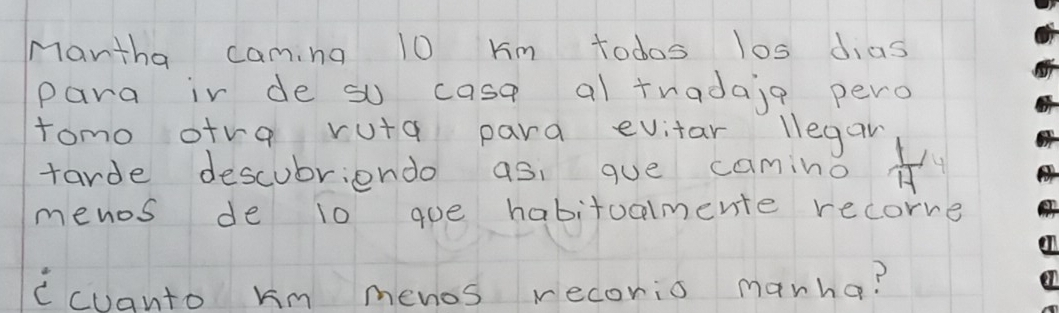 Martha camina 10 Km todos los dias
para ir de su casa al tradaja pero
tomo otra ruta para evitar llegar
tarde descubriendo asi que camino 1/4
menos de lo que habitualmente recorre
¿cuanto km menos recorio marha?